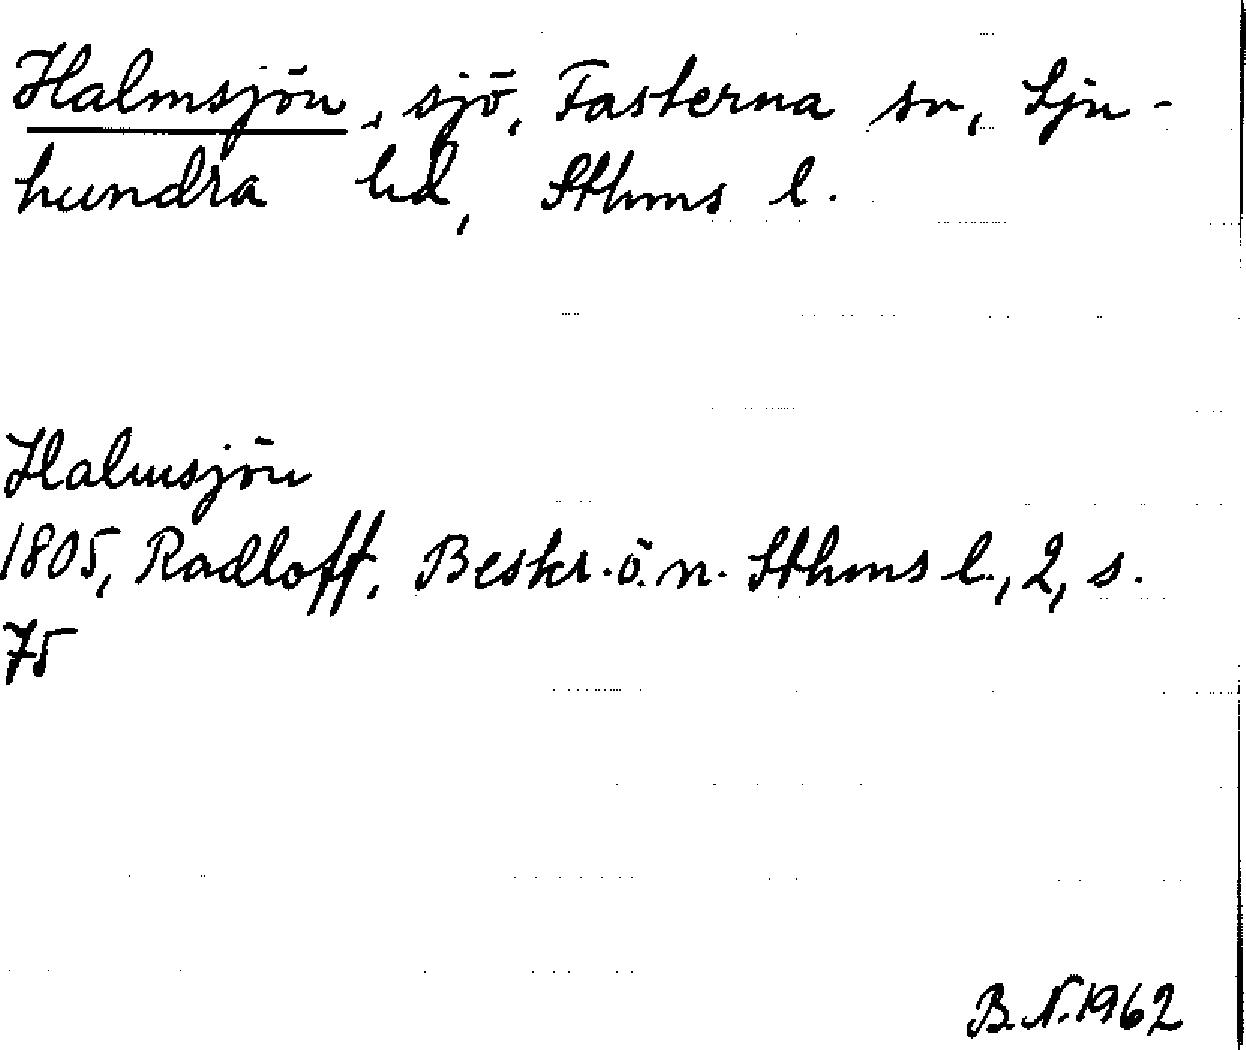 Halmsjön, sjö, Fasterna sn, Sju-
hundra hd, Sthms l.
Halmsjön
1805, Radloff, Beskr. ö. n. Sthms l., 2, s.
75
B.N. 1962